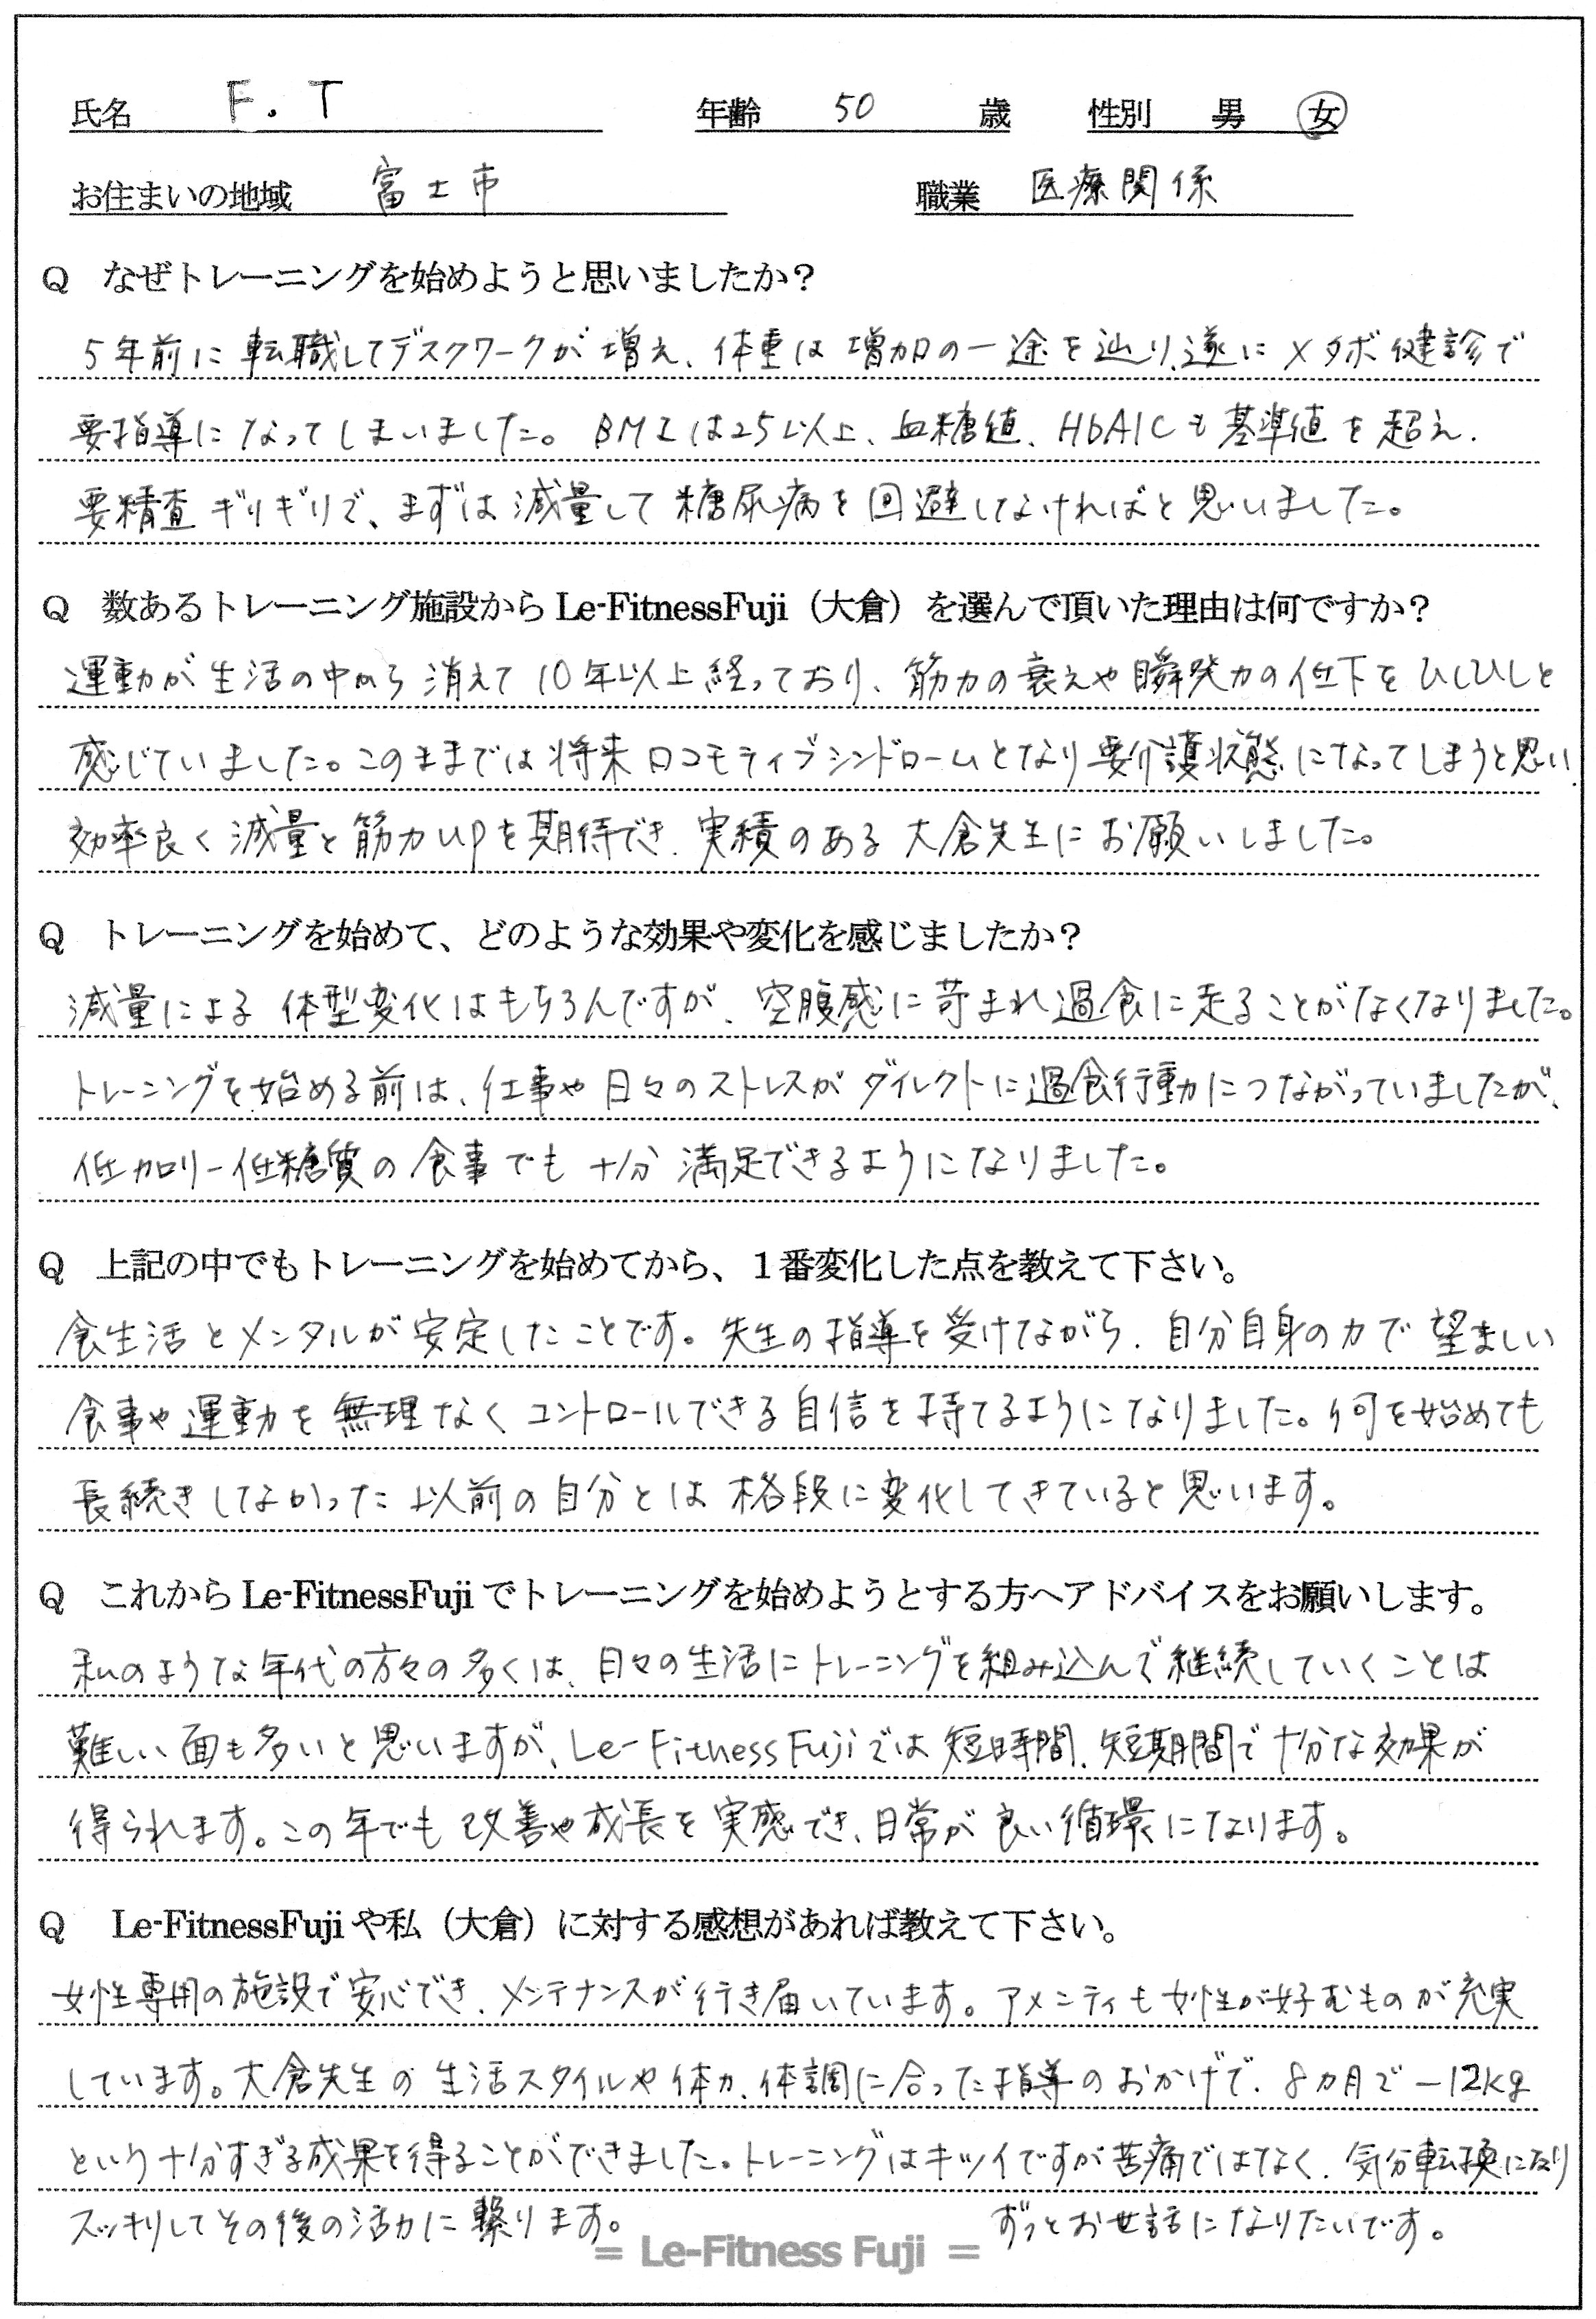 氏名 F.T 年齢 50 歳 性別 男 女
お住まいの地域 富士市 職業 医療関係
Q なぜトレーニングを始めようと思いましたか？
5年前に転職してデスクワークが増え、体重は増加の一途を辿り、遂にメタボ健診で
要指導になってしまいました。BMIは25以上、血糖値、HbA1Cも基準値を超え、
要精査ギリギリで、まずは減量して糖尿病を回避しなければと思いました。
Q 数あるトレーニング施設からLe-FitnessFuji（大倉）を選んで頂いた理由は何ですか？
運動が生活の中から消えて10年以上経っており、筋力の衰えや瞬発力の低下をひしひしと
感じていました。このままでは将来ロコモティブシンドロームとなり要介護状態になってしまうと思い、
効率良く減量と筋力upを期待でき、実績のある大倉先生にお願いしました。
Q トレーニングを始めて、どのような効果や変化を感じましたか？
減量による体型変化はもちろんですが、空腹感に苛まれ過食に走ることがなくなりました。
トレーニングを始める前は、仕事や日々のストレスがダイレクトに過食行動につながっていましたが、
低カロリー低糖質の食事でも十分満足できるようになりました。
Q 上記の中でもトレーニングを始めてから、１番変化した点を教えて下さい。
食生活とメンタルが安定したことです。先生の指導を受けながら、自分自身の力で望ましい
食事や運動を無理なくコントロールできる自信を持てるようになりました。何を始めても
長続きしなかった以前の自分とは格段に変化してきていると思います。
Q これからLe-FitnessFujiでトレーニングを始めようとする方へアドバイスをお願いします。
私のような年代の方々の多くは、日々の生活にトレーニングを組み込んで継続していくことは
難しい面も多いと思いますが、Le-FitnessFujiでは短時間、短期間で十分な効果が
得られます。この年でも改善や成長を実感でき、日常が良い循環になります。
Q Le-FitnessFujiや私（大倉）に対する感想があれば教えて下さい。
女性専用の施設で安心でき、メンテナンスが行き届いています。アメニティも女性が好むものが充実
しています。大倉先生の生活スタイルや体力、体調に合った指導のおかげで、8カ月で−12kg
という十分すぎる成果を得ることができました。トレーニングはキツイですが苦痛ではなく、気分転換になり
スッキリしてその後の活力に繋ります。 ずっとお世話になりたいです。
= Le-Fitness Fuji =